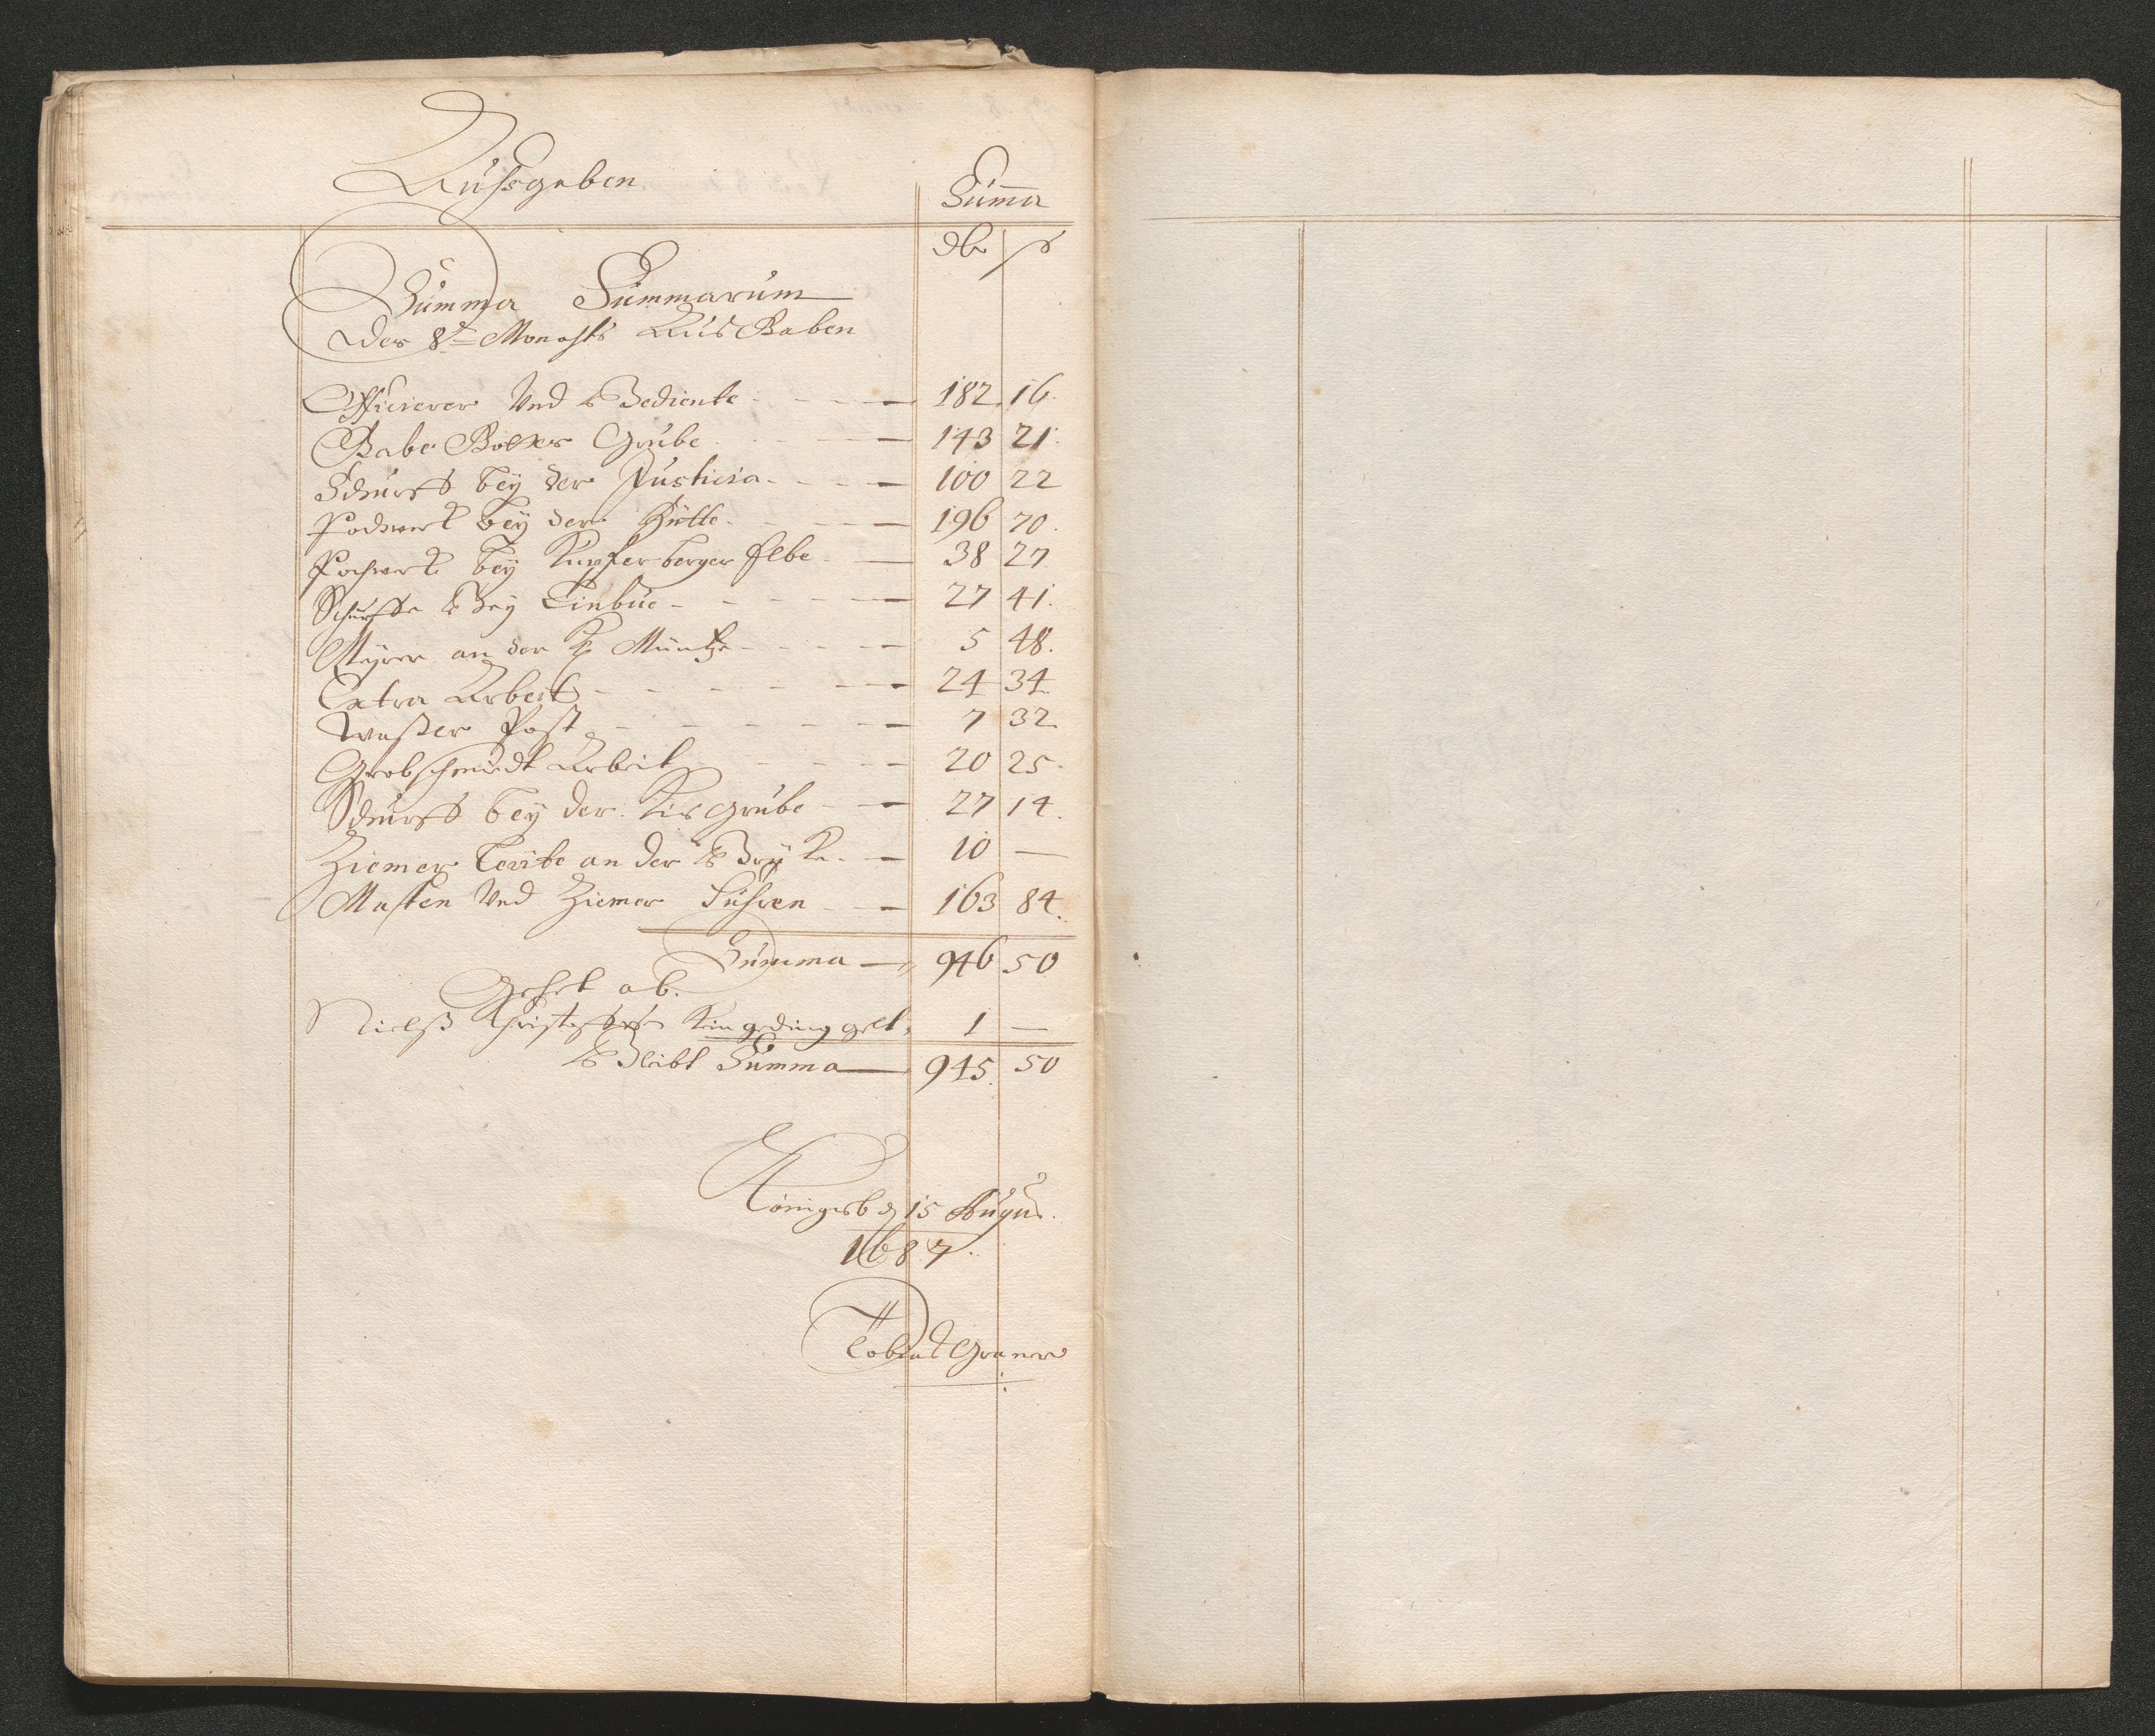 Außgeben
Summa
dlr ß
Summa Summarum
Der 8t Monahts Aus Gaben
Officierer Und Bediente 182 16.
Gabe Gottes Grube 143 21.
Schurff bey der Justicia 100 22
Pochwerk bey der Hütte 196 70.
Pochwerk bey Kupferberger Elbe 38 27
Schurffe Bey 27 41.
an der K Müntze 5 48.
Extra Arbeit 24 34
Waßer Post 7 32
Grobschmidt Arbeit 20 25.
Schurff bey der Kis Grube 27 14.
Ziemer Leute an der Brüke 10 —
Masten Und Ziemer Fuhren 163 84.
Summa 946 50
Gehet ab.
Nielß geding gelt 1 —
Bleibt Summa 945. 50
Königsb d 15 Augus.
1687.
Tobias Graner